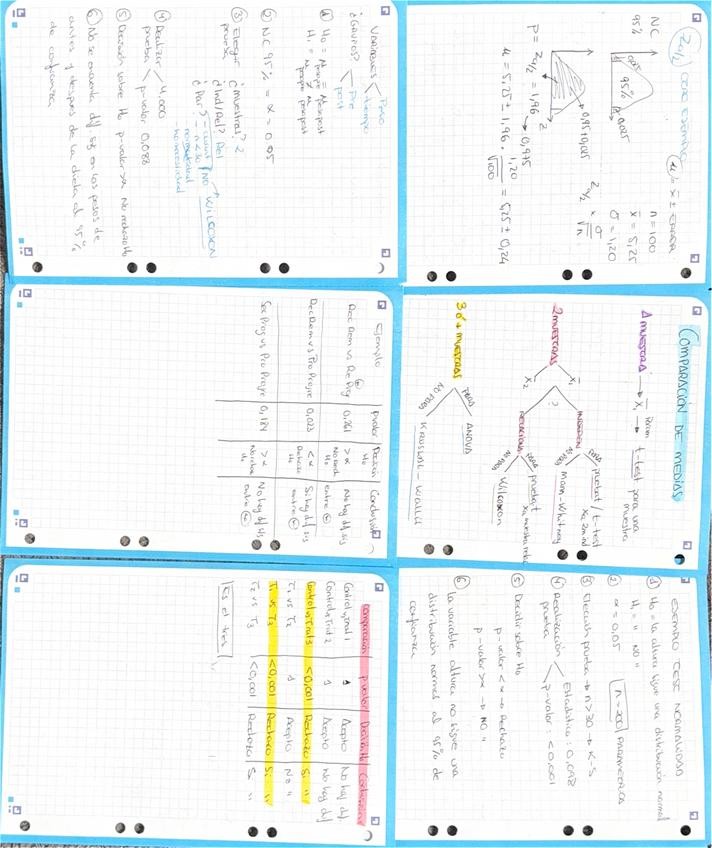 Zα/2 COMO EJEMPLO
μ = x̄ ± ERROR
NC
95%
0,025
95%
0,025
n = 100
x̄ = 5,25
σ = 1,20
0,95+0,025
Zα/2 × σ/√n
P = Zα/2 = 1,96 → 0,975
μ = 5,25 ± 1,96 · 1,20/√100 = 5,25 ± 0,24
COMPARACIÓN DE MEDIAS
1 MUESTRA → x̄1 → t-test para una
muestra
2 MUESTRAS
x̄1
x̄2
?
INDEPEN
RELACIONA
PARA
prueba t / t-test
xa 2m ind
NO PARA
Mann-Whitney
PARA
prueba t
xa muestra rela
NO PARA
Wilcoxon
3 ó + MUESTRAS
PARA
ANOVA
NO PARA
Kruskal-Wallis
EJEMPLO TEST NORMALIDAD
① H0 = la altura sigue una distribución normal
H1 = " NO "
② α = 0,05 n = 200 PARAMÉTRICA
③ Elección prueba → n > 30 → K-S
④ Realización prueba
Estadístico: 0,098
p-valor: <0,001
⑤ Decidir sobre H0
p-valor < α → Rechazo
p-valor > α → NO "
⑥ La variable altura no sigue una
distribución normal al 95% de
confianza
VARIABLES
Peso
tiempo
¿GRUPOS?
Pre
post
① H0 =
H1 =
② NC 95% = α = 0.05
③ Elegir prueba
¿muestras? 2
¿Ind/Rel? Rel
¿Par?
NO
WILCOXON
n < 30
no normalidad
④ Realizar prueba
4,000
p-valor 0,088
⑤ Decisión sobre H0 p-valor > α No rechazo H0
⑥ No se encuentra dif sig en los pesos de
antes y después de la dieta al 95%
de confianza
Ejemplo
p valor
Decisión H0
Conclusión
Rec Dem vs Re Prog
0,261
> α
No rech H0
No hay dif sis
entre
Rec Dem vs Pro Progre
0,023
< α
Rechazo H0
Si hay dif sis
entre
Sec Prog vs Pro Progre
0,184
> α
No recha H0
No hay dif sis
entre
comparación p-valor Decis H0 Conclusión
Control vs Trat 1 1 Acepto No hay dif
Control vs Trat 2 1 Acepto No hay dif
Control vs Trat 3 <0,001 Rechazo Si "
T1 vs T2 1 Acepto No "
T1 vs T3 <0,001 Rechazo Si "
T2 vs T3 <0,001 Rechazo Si "
Es el tres